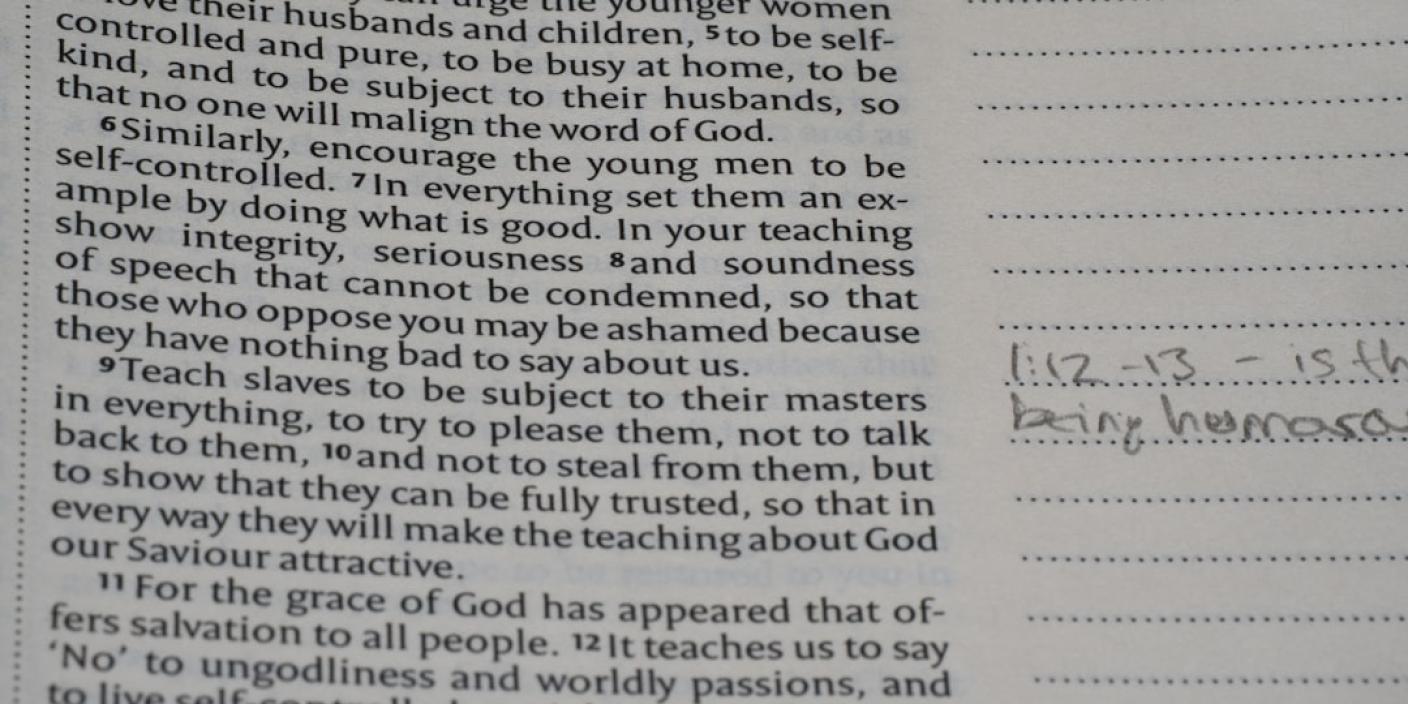 love their husbands and children, 5 to be self-
controlled and pure, to be busy at home, to be
kind, and to be subject to their husbands, so
that no one will malign the word of God.
6 Similarly, encourage the young men to be
self-controlled. 7 In everything set them an ex-
ample by doing what is good. In your teaching
show integrity, seriousness 8 and soundness
of speech that cannot be condemned, so that
those who oppose you may be ashamed because
they have nothing bad to say about us.
9 Teach slaves to be subject to their masters
in everything, to try to please them, not to talk
back to them, 10 and not to steal from them, but
to show that they can be fully trusted, so that in
every way they will make the teaching about God
our Saviour attractive.
11 For the grace of God has appeared that of-
fers salvation to all people. 12 It teaches us to say
‘No’ to ungodliness and worldly passions, and
to live
1:12-13 - is
being